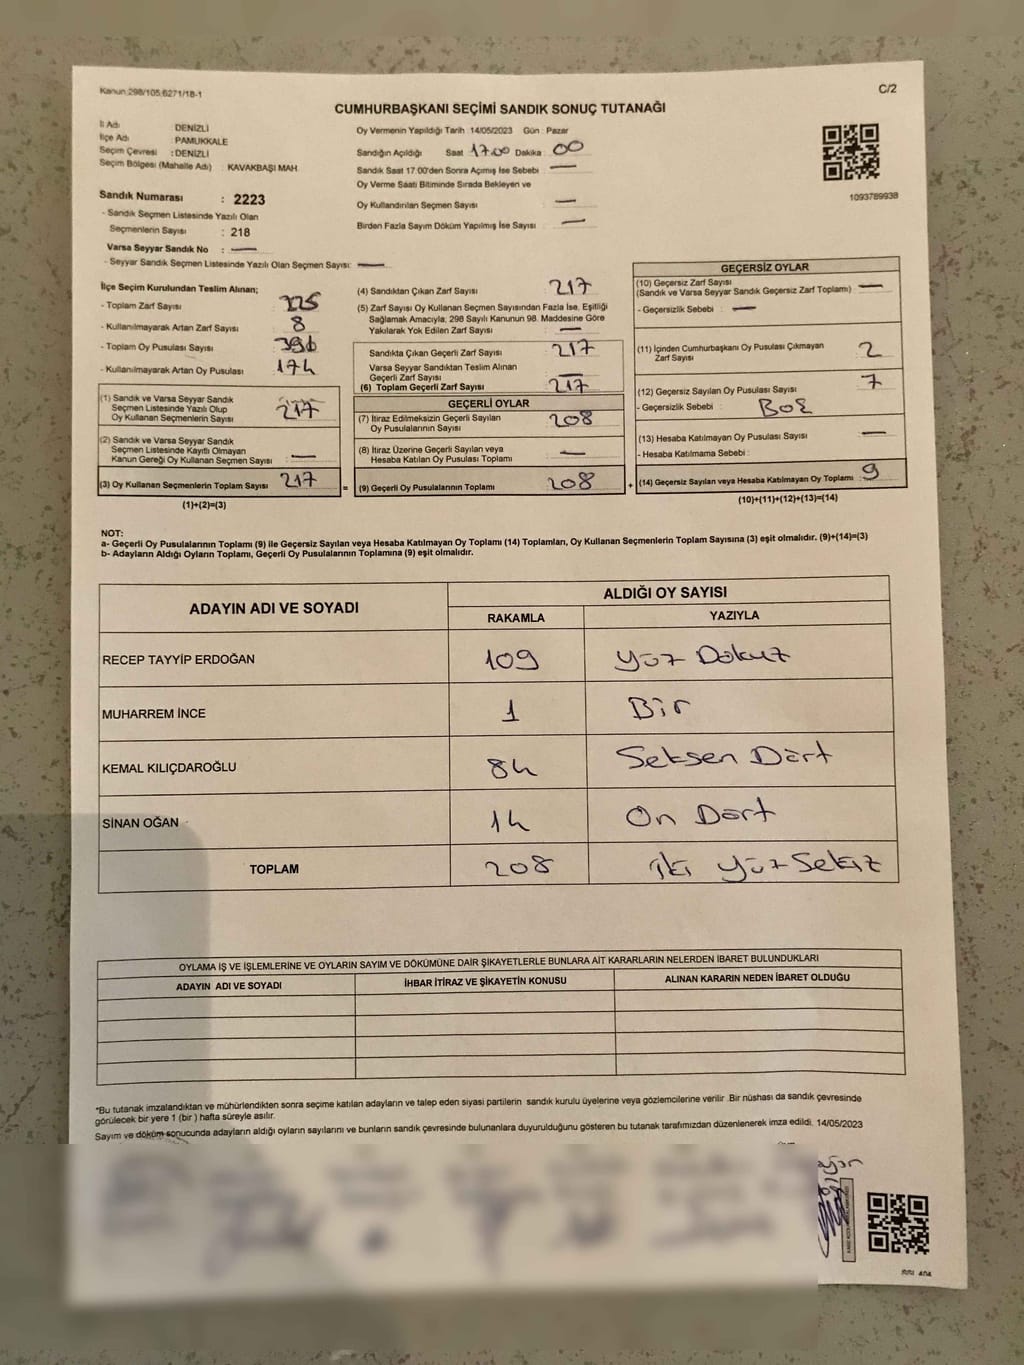 Kanun:298/105,6271/18-1
C/2
CUMHURBAŞKANI SEÇİMİ SANDIK SONUÇ TUTANAĞI
İl Adı : DENİZLİ
İlçe Adı : PAMUKKALE
Seçim Çevresi : DENİZLİ
Seçim Bölgesi (Mahalle Adı) : KAVAKBAŞI MAH
Sandık Numarası : 2223
- Sandık Seçmen Listesinde Yazılı Olan
Seçmenlerin Sayısı : 218
Varsa Seyyar Sandık No : —
- Seyyar Sandık Seçmen Listesinde Yazılı Olan Seçmen Sayısı: —
Oy Vermenin Yapıldığı Tarih 14/05/2023 Gün : Pazar
Sandığın Açıldığı Saat 17.00 Dakika : 00
Sandık Saat 17:00'den Sonra Açımış İse Sebebi : —
Oy Verme Saati Bitiminde Sırada Bekleyen ve
Oy Kullandırılan Seçmen Sayısı : —
Birden Fazla Sayım Döküm Yapılmış İse Sayısı : —
1093789938
İlçe Seçim Kurulundan Teslim Alınan;
- Toplam Zarf Sayısı : 225
- Kullanılmayarak Artan Zarf Sayısı : 8
- Toplam Oy Pusulası Sayısı :
- Kullanılmayarak Artan Oy Pusulası : 174
(1) Sandık ve Varsa Seyyar Sandık
Seçmen Listesinde Yazılı Olup
Oy Kullanan Seçmenlerin Sayısı : 217
(2) Sandık ve Varsa Seyyar Sandık
Seçmen Listesinde Kayıtlı Olmayan
Kanun Gereği Oy Kullanan Seçmen Sayısı : —
(3) Oy Kullanan Seçmenlerin Toplam Sayısı : 217
(1)+(2)=(3)
(4) Sandıktan Çıkan Zarf Sayısı : 217
(5) Zarf Sayısı Oy Kullanan Seçmen Sayısından Fazla İse, Eşitliği
Sağlamak Amacıyla; 298 Sayılı Kanunun 98. Maddesine Göre
Yakılarak Yok Edilen Zarf Sayısı : —
Sandıkta Çıkan Geçerli Zarf Sayısı : 217
Varsa Seyyar Sandıktan Teslim Alınan
Geçerli Zarf Sayısı : —
(6) Toplam Geçerli Zarf Sayısı : 217
GEÇERLİ OYLAR
(7) İtiraz Edilmeksizin Geçerli Sayılan
Oy Pusulalarının Sayısı : 208
(8) İtiraz Üzerine Geçerli Sayılan veya
Hesaba Katılan Oy Pusulası Toplamı : —
(9) Geçerli Oy Pusulalarının Toplamı : 208
GEÇERSİZ OYLAR
(10) Geçersiz Zarf Sayısı : —
(Sandık ve Varsa Seyyar Sandık Geçersiz Zarf Toplamı)
- Geçersizlik Sebebi : —
(11) İçinden Cumhurbaşkanı Oy Pusulası Çıkmayan
Zarf Sayısı : 2
(12) Geçersiz Sayılan Oy Pusulası Sayısı : 7
- Geçersizlik Sebebi : BOŞ
(13) Hesaba Katılmayan Oy Pusulası Sayısı : —
- Hesaba Katılmama Sebebi :
(14) Geçersiz Sayılan veya Hesaba Katılmayan Oy Toplamı : 9
(10)+(11)+(12)+(13)=(14)
NOT:
a- Geçerli Oy Pusulalarının Toplamı (9) ile Geçersiz Sayılan veya Hesaba Katılmayan Oy Toplamı (14) Toplamları, Oy Kullanan Seçmenlerin Toplam Sayısına (3) eşit olmalıdır. (9)+(14)=(3)
b- Adayların Aldığı Oyların Toplamı, Geçerli Oy Pusulalarının Toplamına (9) eşit olmalıdır.
ADAYIN ADI VE SOYADI ALDIĞI OY SAYISI
RAKAMLA YAZIYLA
RECEP TAYYİP ERDOĞAN 109 Yüz Dokuz
MUHARREM İNCE 1 Bir
KEMAL KILIÇDAROĞLU 84 Seksen Dört
SİNAN OĞAN 14 On Dört
TOPLAM 208 iki yüz Sekiz
OYLAMA İŞ VE İŞLEMLERİNE VE OYLARIN SAYIM VE DÖKÜMÜNE DAİR ŞİKAYETLERLE BUNLARA AİT KARARLARIN NELERDEN İBARET BULUNDUKLARI
ADAYIN ADI VE SOYADI İHBAR İTİRAZ VE ŞİKAYETİN KONUSU ALINAN KARARIN NEDEN İBARET OLDUĞU
*Bu tutanak imzalandıktan ve mühürlendikten sonra seçime katılan adayların ve talep eden siyasi partilerin sandık kurulu üyelerine veya gözlemcilerine verilir. Bir nüshası da sandık çevresinde
görülecek bir yere 1 (bir) hafta süreyle asılır.
Sayım ve döküm sonucunda adayların aldığı oyların sayılarını ve bunların sandık çevresinde bulunanlara duyurulduğunu gösteren bu tutanak tarafımızdan düzenlenerek imza edildi. 14/05/2023